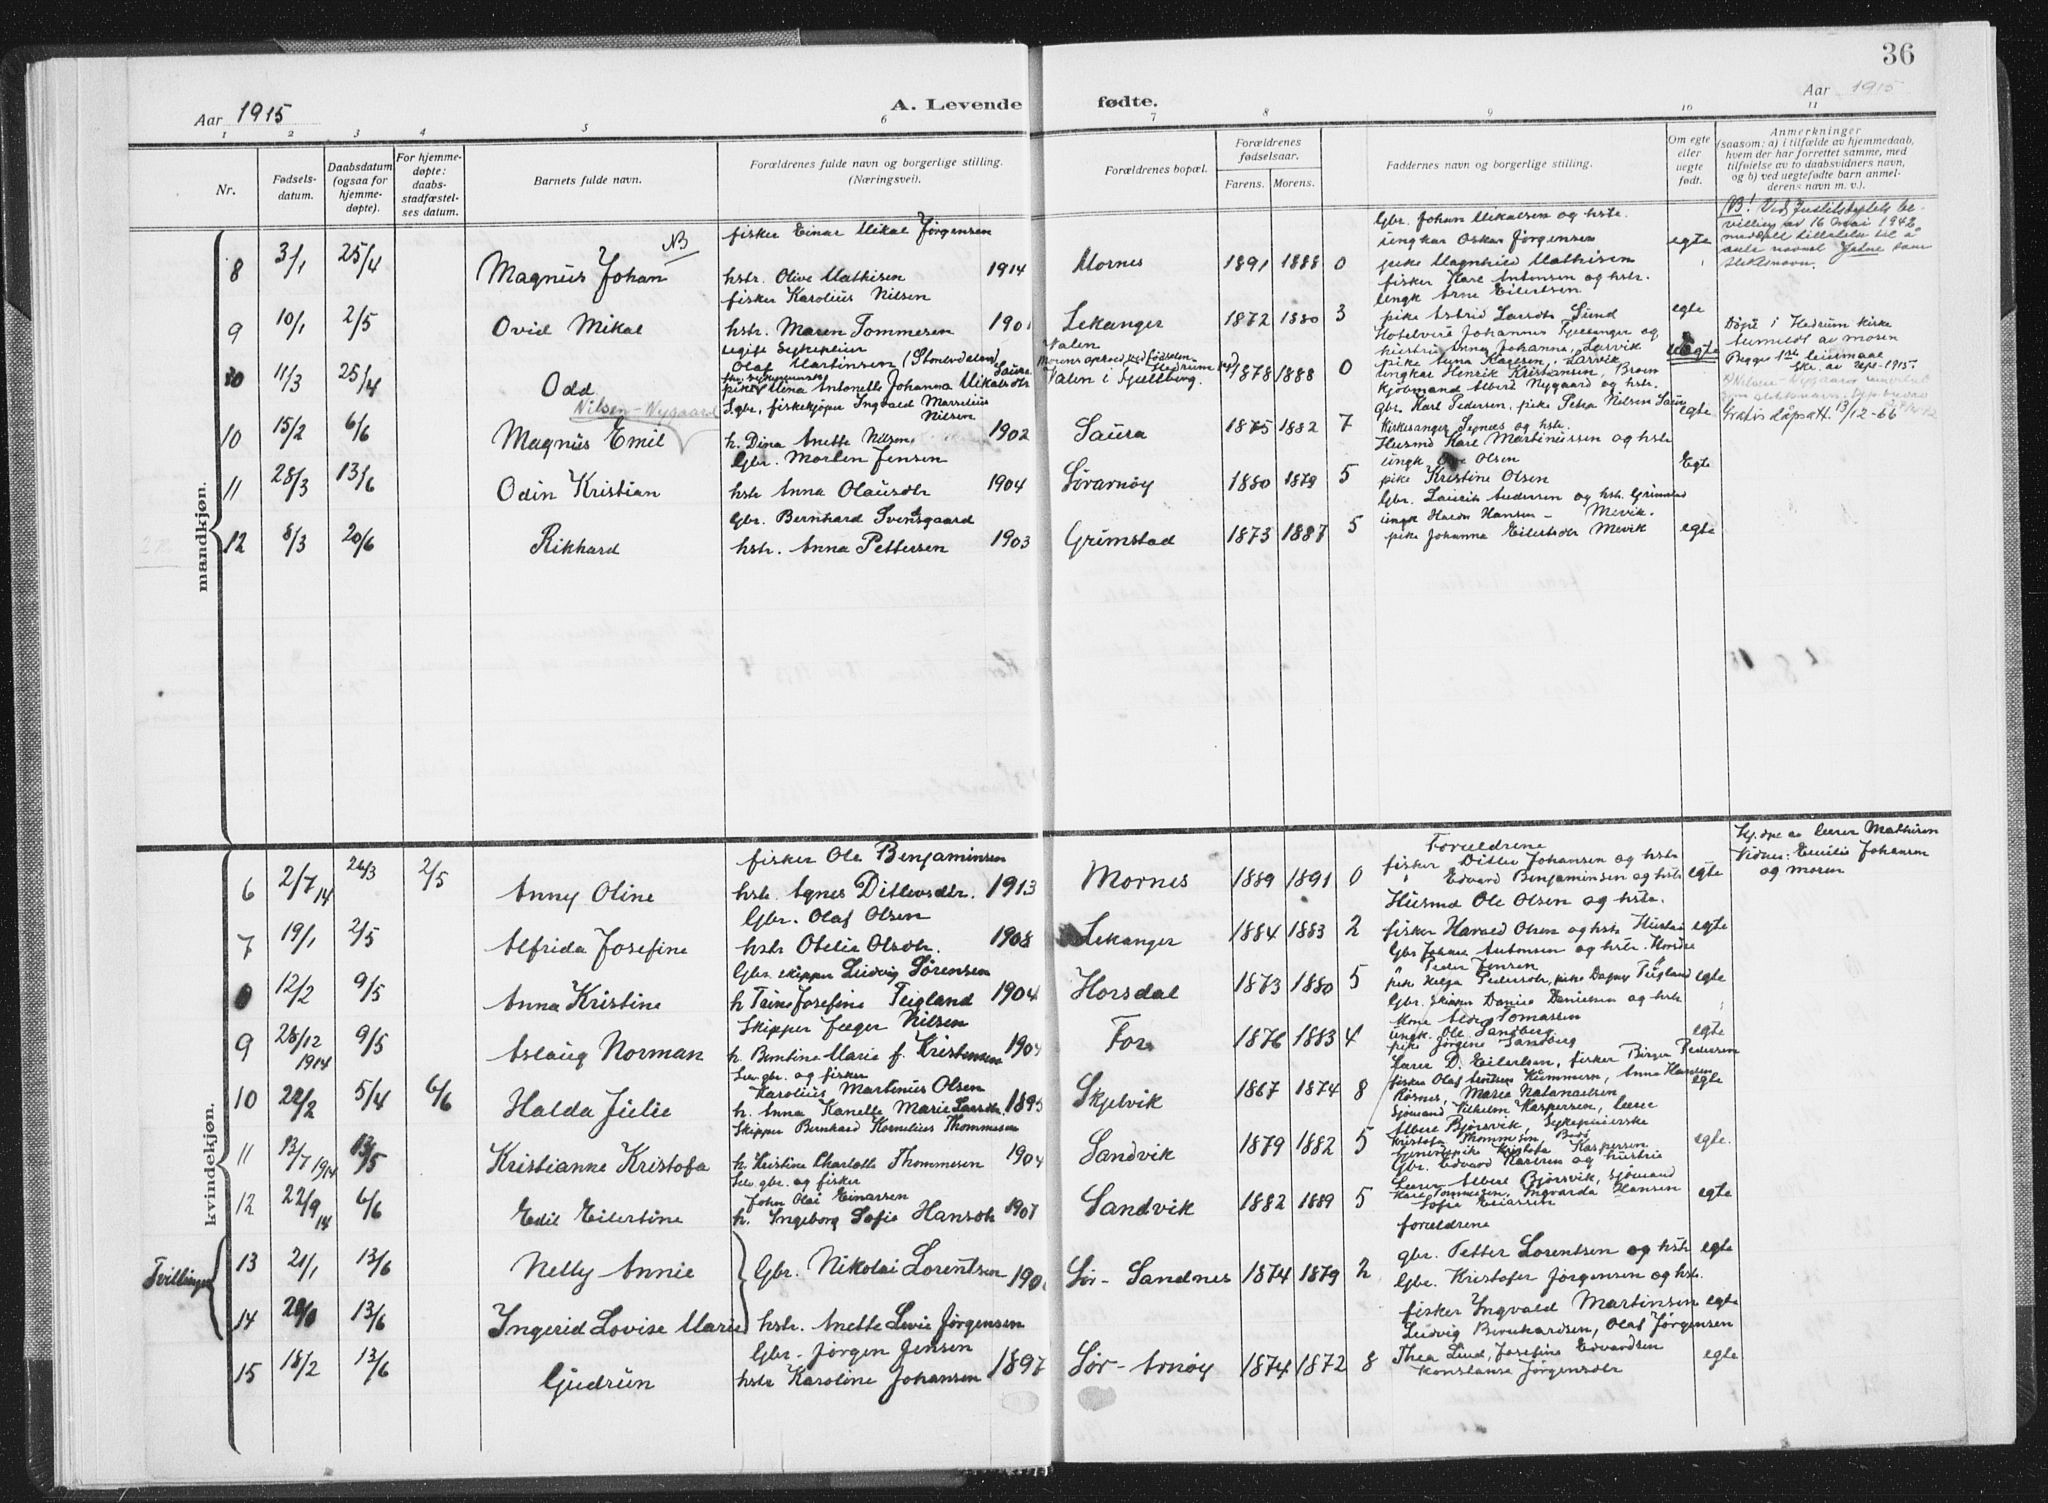 36
Aar 1915
A. Levende fødte.
Aar 1915
1 2 3 4 5 6 7 8 9 10 11
Nr.
Fødsels-
datum.
Daabsdatum
(ogsaa for
hjemme-
døpte).
For hjemme-
døpte:
daabs-
stadfæstel-
ses datum.
Barnets fulde navn.
Forældrenes fulde navn og borgerlige stilling.
(Næringsvei).
Forældrenes bopæl.
Forældrenes
fødselsaar.
Farens. Morens.
Faddernes navn og borgerlige stilling.
Om egte
eller
uegte
født.
Anmerkninger
(saasom: a) i tilfælde av hjemmedaab,
hvem der har forrettet samme, med
tilføielse av to daabsvidners navn,
og b) ved uegtefødte barn anmel-
derens navn m. v.).
mandkjøn.
8 3/1 25/4 Magnus Johan NB
fisker Einar Mikal Jørgensen
hstr. Olive Mathisen 1914
Mornes 1891 1888 0
Gbr. Johan Mikalsen og hstr.
ungkar Oskar Jørgensen
pike Magnhild Mathisen
fisker Karl Antonsen og hstr.
egte
NB! Ved Justitsdeptets be-
villing av 16 mai 1942
meddelt tillatelse til å
anta navnet Jalne som
slektsnavn.
9 10/1 2/5 Ovid Mikal
fisker Karolius Nilsen
hstr. Maren Tommesen 1901
Lekanger 1872 1880 3
ungk Arne Eilertsen
pike Astrid Larsdtr Lund
egte
10 11/3 25/4 Odd
Olaf Martinsen
pike Mina Antonette Johanna Mikalsdtr
Valen
Valen i Gjellberg. 1878 1888 0
Hotelvert Johannes og
hustru Anna Johanna, Larvik
pike Anna Karlsen, Larvik
ungkar Henrik Kristiansen, Broen
uegte
Døpt i Hedrum kirke
anmeldt av moren
Begges 1ste leiermaal
10 15/2 6/6 Magnus Emil
Nilsen-Nygaard
S.gbr, fiskekjøper Ingvald Marselius
Nilsen
h. Dina Anette Nilsen, 1902
Saura 1875 1882 7
Kjøbmand Albert Nygaard og hstr.
gbr. Karl Pedersen, pike Petra Nilsen Saura
Kirkesanger og hstr.
egte
Gratis dåpsatt. 13/12-66
11 28/3 13/6 Odin Kristian
Gbr. Morten Jensen
hstr Anna Olausdtr 1904
Sørarnøy 1880 1879 5
Husmd Karl Martinussen og hstr
ungk Olsen
pike Kristine Olsen
Egte
12 8/3 20/6 Rikhard
Gbr. Bernhard Svensgaard
hstr. Anna Pettersen 1903
Grimstad 1873 1887 5
Gbr. Laurits Andersen og hstr. Grimstad
ungk Hansen - Mevik.
pike Johanna Eilertsdtr Mevik
egte
kvindekjøn.
6 2/7 14 26/3 2/5 Anny Oline
fisker Ole Benjaminsen
hstr. Agnes Ditlevsdtr. 1913
Mornes 1889 1891 0
Forældrene
fisker Ditlev Johansen og hstr
" Edvard Benjaminsen og hstr
egte
Hj. dpt av lærer Mathisen
Vidner: Emilie Johansen
og moren
7 19/1 2/5 Alfrida Josefine
Gbr. Olaf Olsen
hstr Otelie Olsdtr. 1908
Lekanger 1884 1883 2
Husmd Ole Olsen og hstr.
fisker Harald Olsen og hstr
egte
12/2 9/5 Anna Kristine
Gbr. skipper Ludvig Sørensen
h Trine Josefine Teigland 1904
Horsdal 1873 1880 5
Gbr Johan Antonsen og hstr. Horsdal
Peder Jensen
pike Helga Pedersdtr, pike Dagny Teigland
egte
9 28/12 1914 9/5 Aslaug Norman
Skipper Jæger Nilsen
h. Berntine Marie f. Kristensen
For 1876 1883 4
Gbr. Skipper Daniel Danielsen og hstr
ungk. Ole Sandberg
pike Jörgine Sandberg
egte
10 22/2 5/4 6/6 Halda Julie
Selv. gbr. og fisker
Karolius Martinus Olsen
h. Anna Kanelle Marie Larsdtr. 1895
Skjelvik 1867 1874 8
Lærer D. Eilertsen, fisker Birger Pedersen
egte
11 12/7 1914 13/5 Kristianne Kristofa
Skipper Bernhard Kornelius Thommesen
h. Kristine Charlotte Thommesen 1904
Sandvik 1879 1882 5
Sjömand Vilhelm Kaspersen, lærer
Albert Bjørsvik, Sykepleierske
egte.
12 22/9 14 6/6 Edit Eilertine
Selv. gbr. og fisker
John Olai Einarsen
h. Ingeborg Sofie Hansdtr 1907
Sandvik 1882 1889 5
Gbr. Edvard Karlsen og hustru
Lærer Albert Bjørsvik, sjømand
Karl Tommesen, Ingvarda Hansen
Sofie Einarsen
egte
Tvillinger
13 21/1 13/6 Nelly Annie
Gbr. Nikolai Lorentsen
Sör-Sandnes 1874 1879 2
forældrene
gbr. Petter Lorentsen og hstr
Gbr. Kristofer Jørgensen og hstr.
egte
14 13/6 Ingerid Lovise Marie
hstr. Anette Levie Jørgensen
egte
15 18/2 13/6 Gudrun
Gbr. Jørgen Jensen
hstr Karoline Johansen 1897
Sör-Arnöy 1874 1872 8
fisker Ingvald Martinsen
Ludvig Bernhardsen, Olaf Jørgensen
Thea Lund, Josefine Edvardsen
Konstanse Jørgensdtr
egte